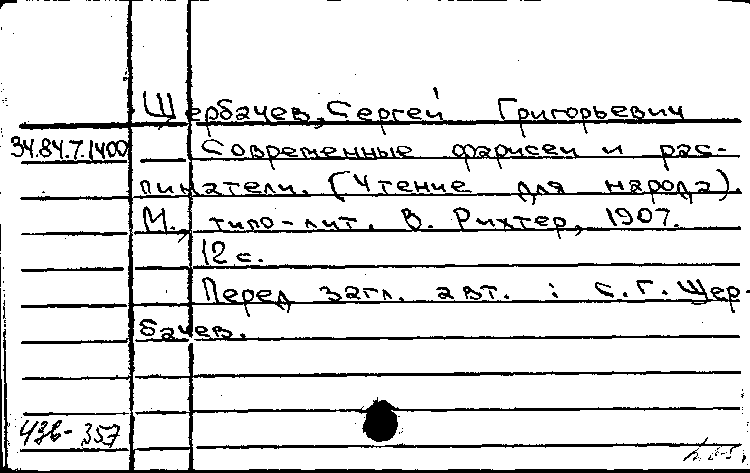 Щербачев, Сергей Григорьевич
34.84.7.1400 Современные фарисеи и рас-
пинатели. (Чтение для народа).
М., типо-лит. В. Рихтер, 1907.
12 с.
Перед загл. авт. : С.Г. Щер-
бачев.
436-357